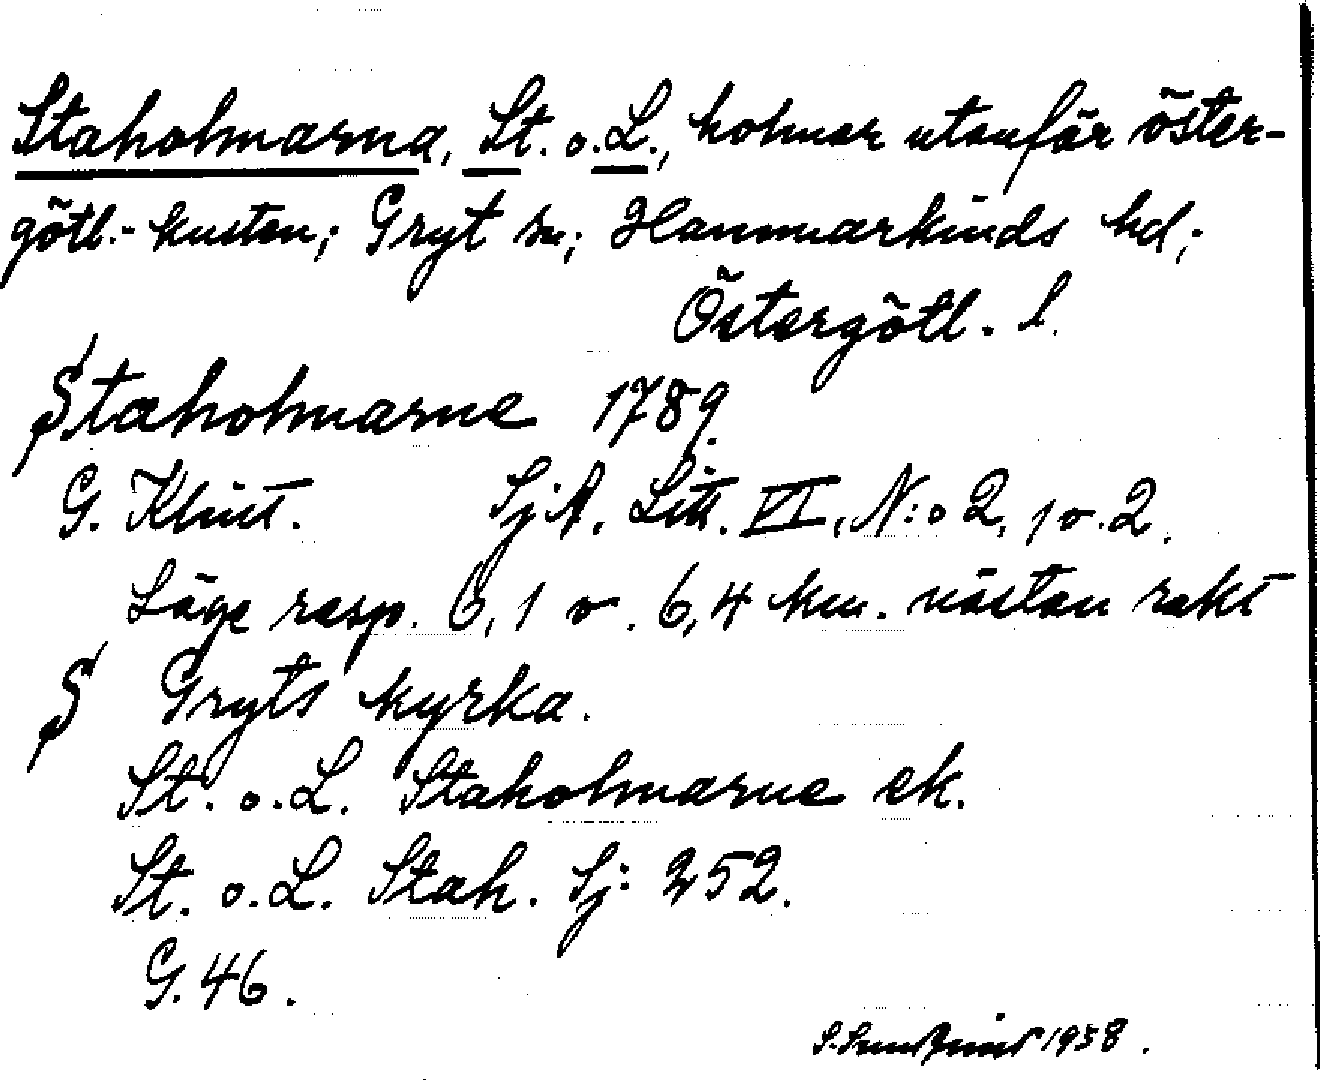 Staholmarna, St. o. L., holmar utanför öster-
götl.-kusten; Gryt sn; Hammarkinds hd;
Östergötl. l.
Staholmarne 1789.
G. Klint. SjA. Litt. VI, N:o 2, 1 o. 2.
Läge resp. 6,1 o. 6,4 km. nästan rakt
S Gryts kyrka.
St. o. L. Staholmarne ek.
St. o. L. Stah. Sj: 252.
G. 46.
S. 1938.